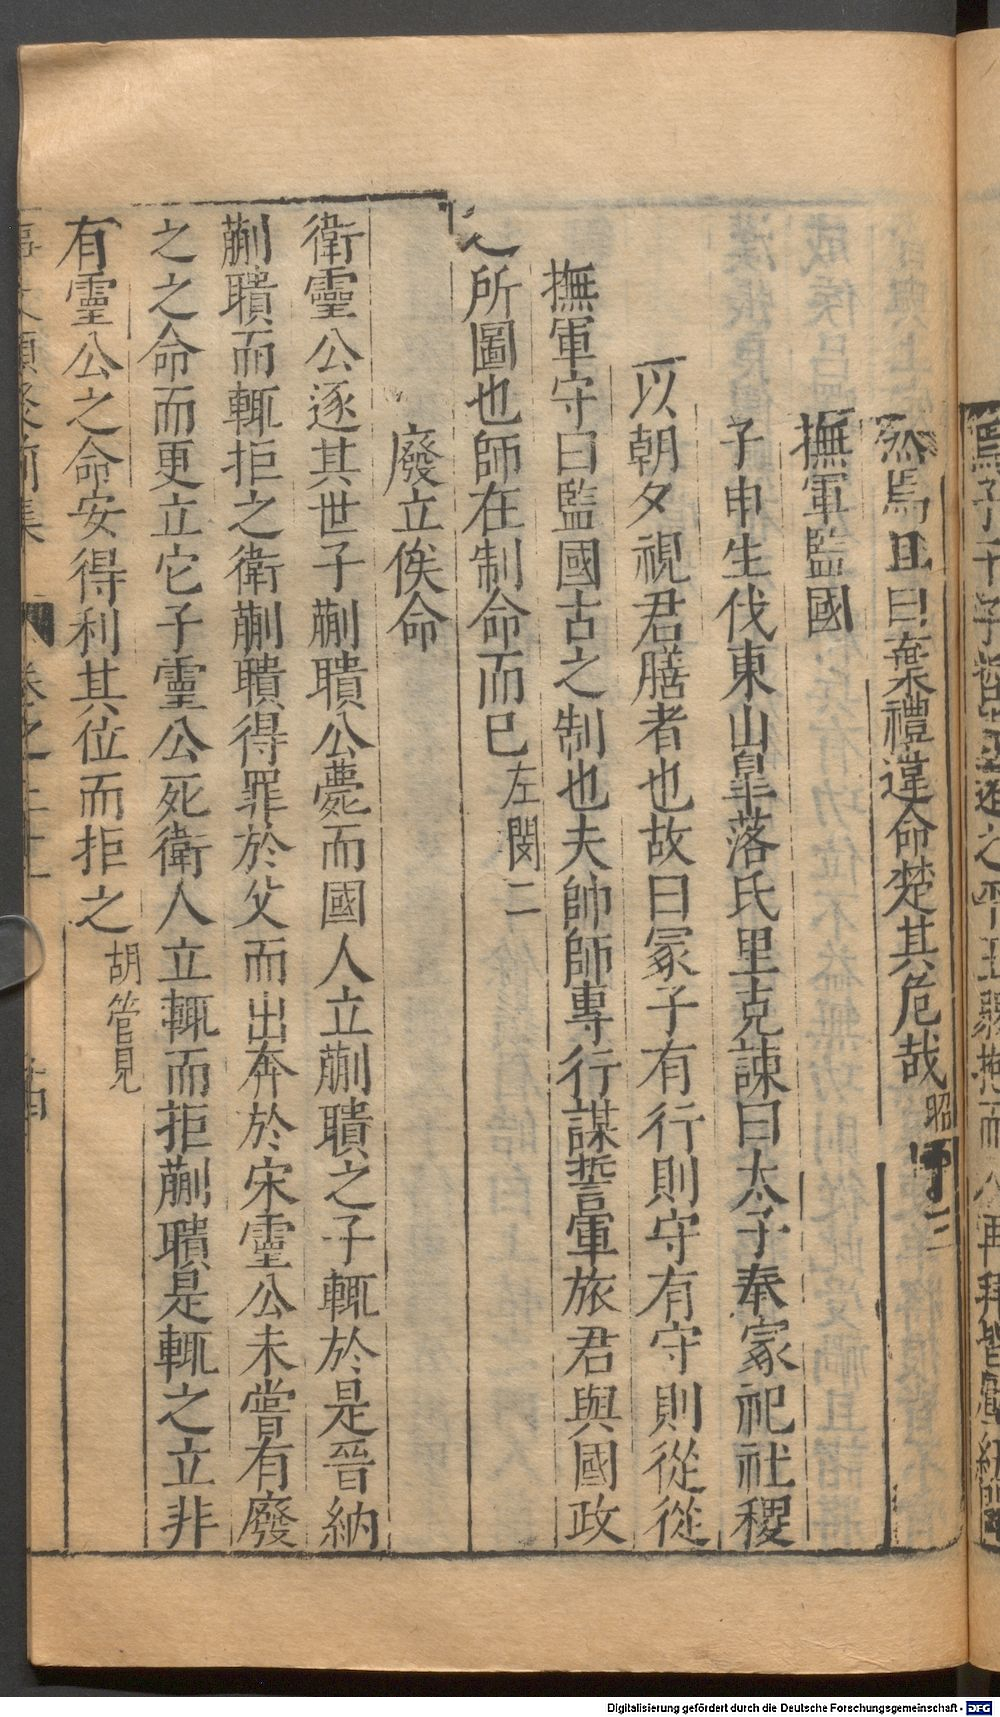 焉且曰棄禮違命楚其危哉昭
撫軍監國
子申生伐東山皐落氏里克諫曰太子奉冢祀社稷
以朝夕視君膳者也故曰冢子有行則守有守則從從
撫軍守曰監國古之制也夫帥師專行謀誓軍旅君與國政
之所圖也師在制命而已左閔二
廢立俟命
衛靈公逐其世子蒯聵公薨而國人立蒯聵之子輒於是晉納
蒯聵而輒拒之衛蒯聵得罪於父而出奔於宋靈公未嘗有廢
之之命而更立它子靈公死衛人立輒而拒蒯聵是輒之立非
有靈公之命安得利其位而拒之胡管見
前集 卷之二十一
Digitalisierung gefördert durch die Deutsche Forschungsgemeinschaft - DFG